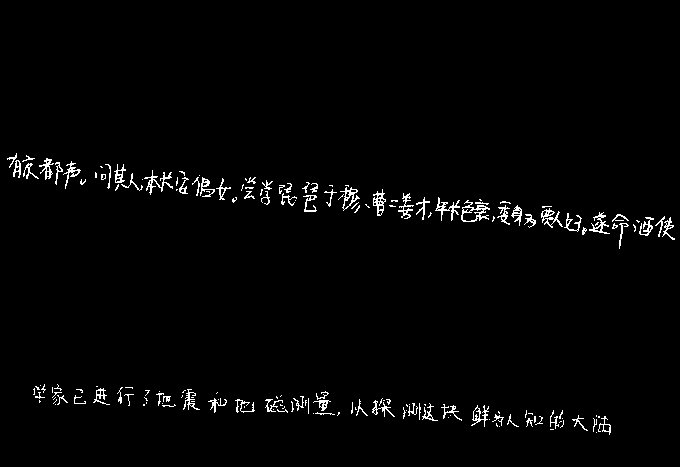 有京都声。问其人,本长安倡女。尝学琵琶于穆、曹二善才,年长色衰,委身为贾人妇。遂命酒使
学家已进行了地震和地磁测量,以探测这块鲜为人知的大陆